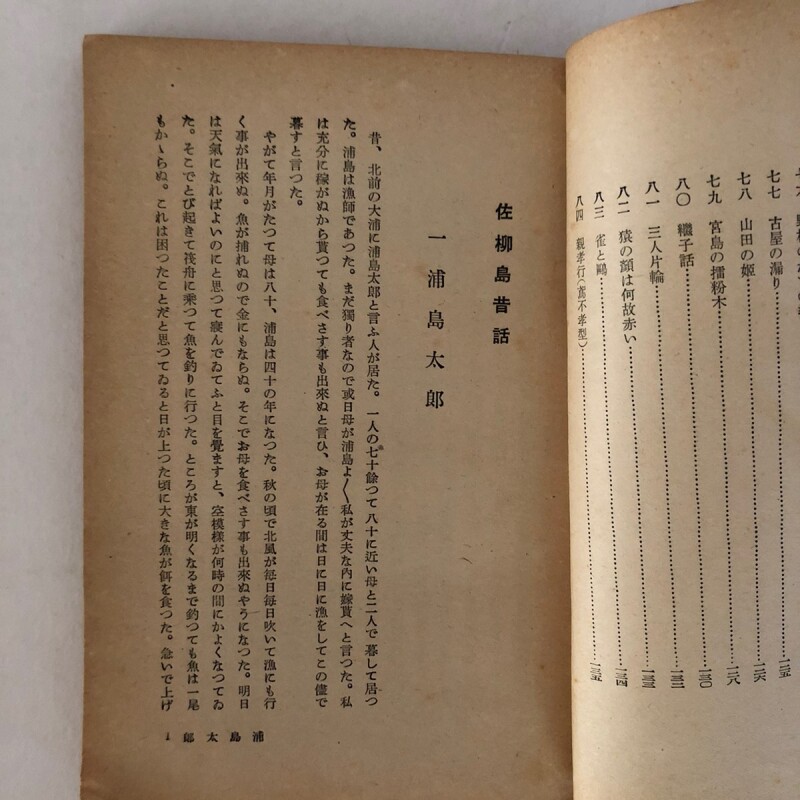 七七 古屋の漏り……一二五
七八 山田の姫……一二六
七九 宮島の擂粉木……一二八
八〇 繼子話……一三〇
八一 三人片輪……一三二
八二 猿の顔は何故赤い……一三三
八三 雀と鷗……一三四
八四 親孝行(鳶不孝型)……一三五
佐柳島昔話
一 浦島太郎
昔、北前の大浦に浦島太郎と言ふ人が居た。一人の七十餘つて八十に近い母と二人で暮して居つ
た。浦島は漁師であつた。まだ獨り者なので或日母が浦島よ〱私が丈夫な内に嫁貰へと言つた。私
は充分に稼がぬから貰つても食べさす事も出來ぬと言ひ、お母が在る間は日に日に漁をしてこの儘で
暮すと言つた。
やがて年月がたつて母は八十、浦島は四十の年になつた。秋の頃で北風が毎日毎日吹いて漁にも行
く事が出來ぬ。魚が捕れぬので金にもならぬ。そこでお母を食べさす事も出來ぬやうになつた。明日
は天氣になればよいのにと思つて寢んでゐてふと目を覺ますと、空模樣が何時の間にかよくなつてゐ
た。そこでとび起きて筏舟に乘つて魚を釣りに行つた。ところが東が明くなるまで釣つても魚は一尾
もかゝらぬ。これは困つたことだと思つてゐると日が上つた頃に大きな魚が餌を食つた。急いで上げ
浦島太郎 1